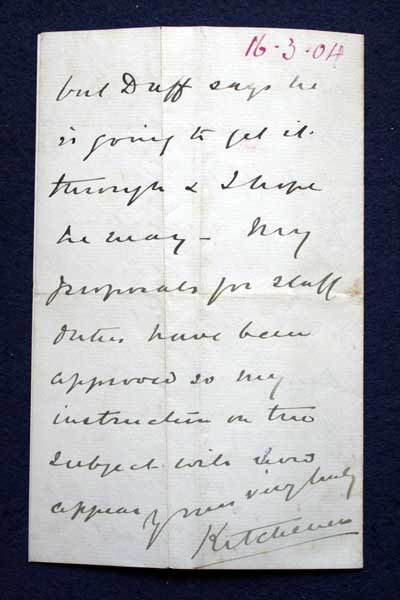 16-3-04
but Duff says he
is going to get it
through & I hope
he may - My
proposals for staff
duties have been
approved so my
instruction on the
subject will soon
appear yours very truly
Kitchener